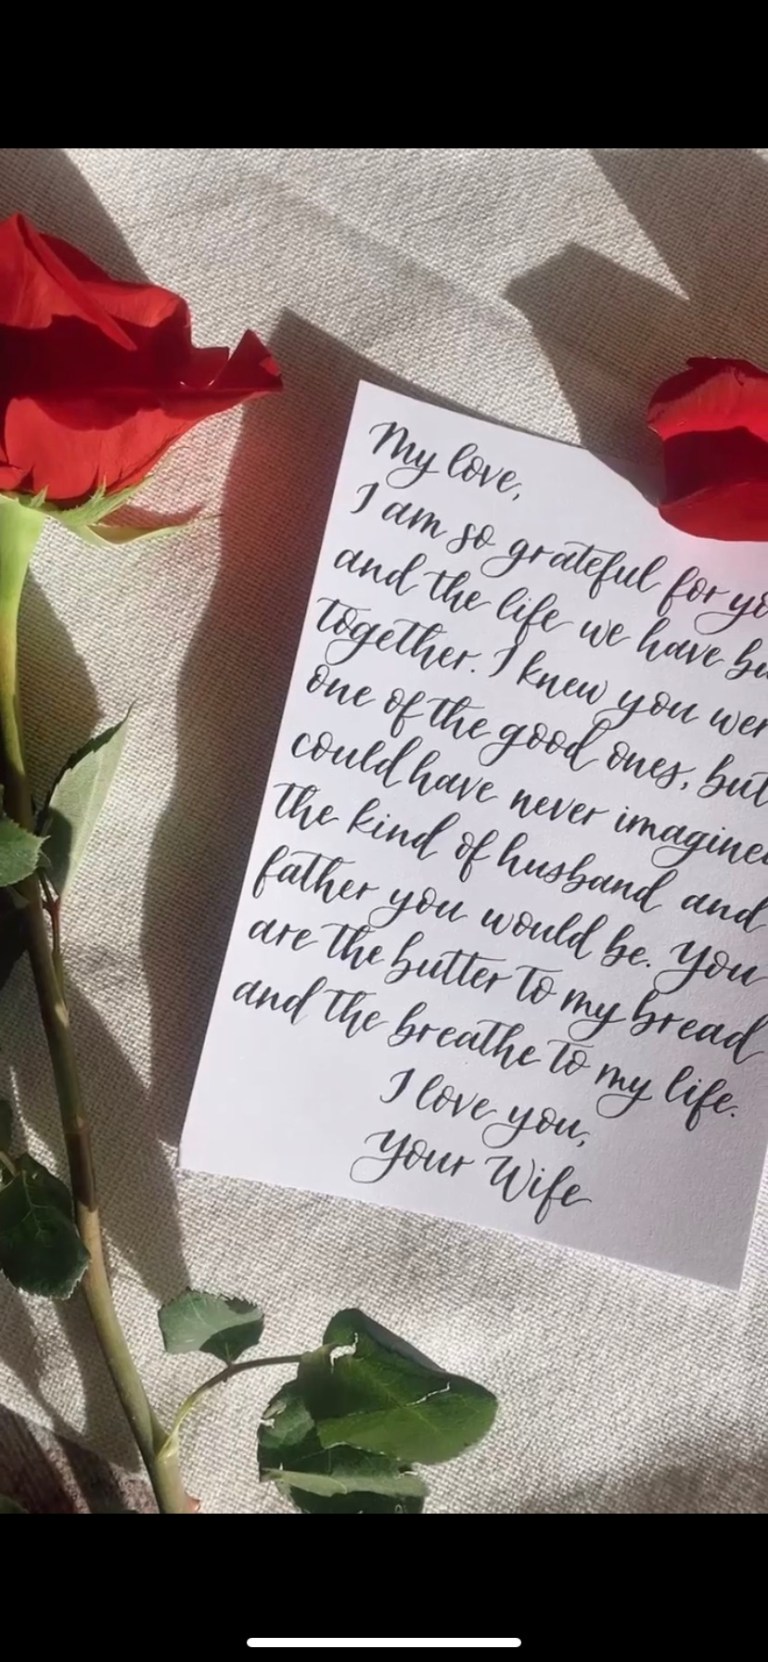 My love,
I am so grateful for yo
and the life we have bu
together. I knew you wer
one of the good ones, but
could have never imagine
the kind of husband and
father you would be. You
are the butter to my bread
and the breathe to my life.
I love you,
Your Wife